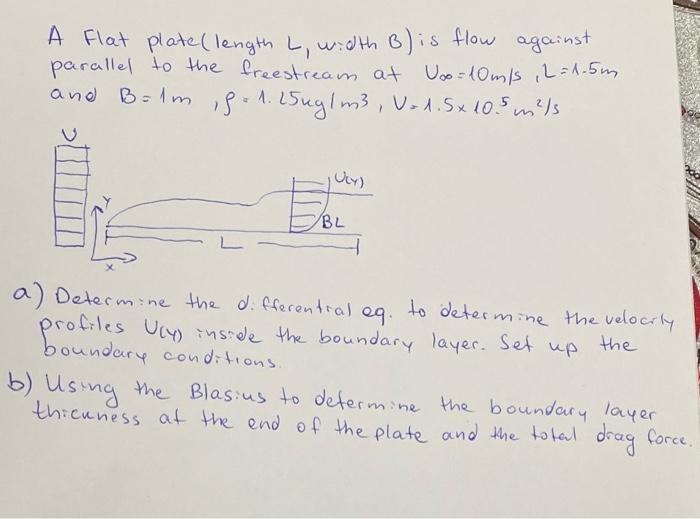 A Flat plate (length L, width B) is flow against
parallel to the freestream at U∞=10m/s, L=1.5m
and B=1m, ρ=1.25kg/m3, V=1.5x10.5 m²/s
U
U(Y)
Y
BL
L
x
a) Determine the differential eq. to determine the velocity
profiles U(Y) inside the boundary layer. Set up the
boundary conditions.
b) Using the Blasius to determine the boundary layer
thickness at the end of the plate and the total drag force.